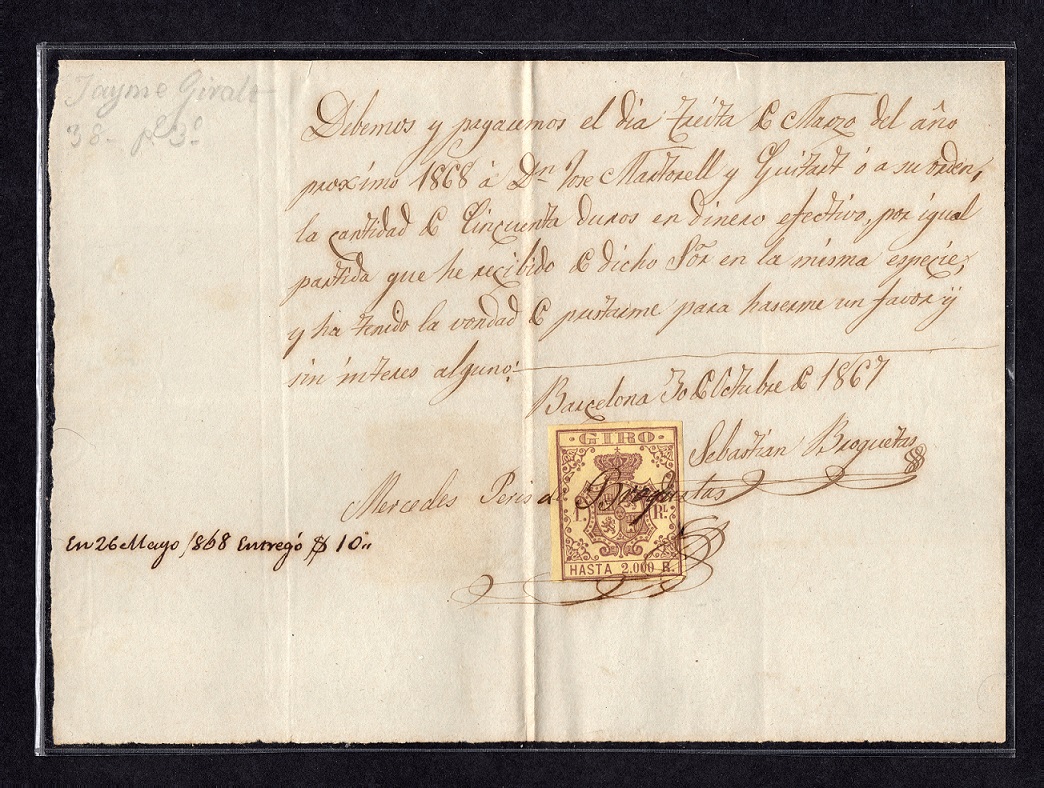 Jayme Giralt
38- pl 3º
Debemos y pagaremos el dia treita de Marzo del año
proximo 1868 á Dn. Jose Martorell y Guitart ó a su orden,
la cantidad de Cincuenta duros en dinero efectivo, por igual
partida que he recibido de dicho Sor en la misma especie,
y ha tenido la vondad de prestarme para haserme un favor y
sin interes alguno:
Barcelona 30 de Octubre de 1867
GIRO
Sebastian Broquetas
Mercedes Peris de Broquetas
1. Rl.
En 26 Mayo 1868 Entregó $ 10..
HASTA 2,000 R.